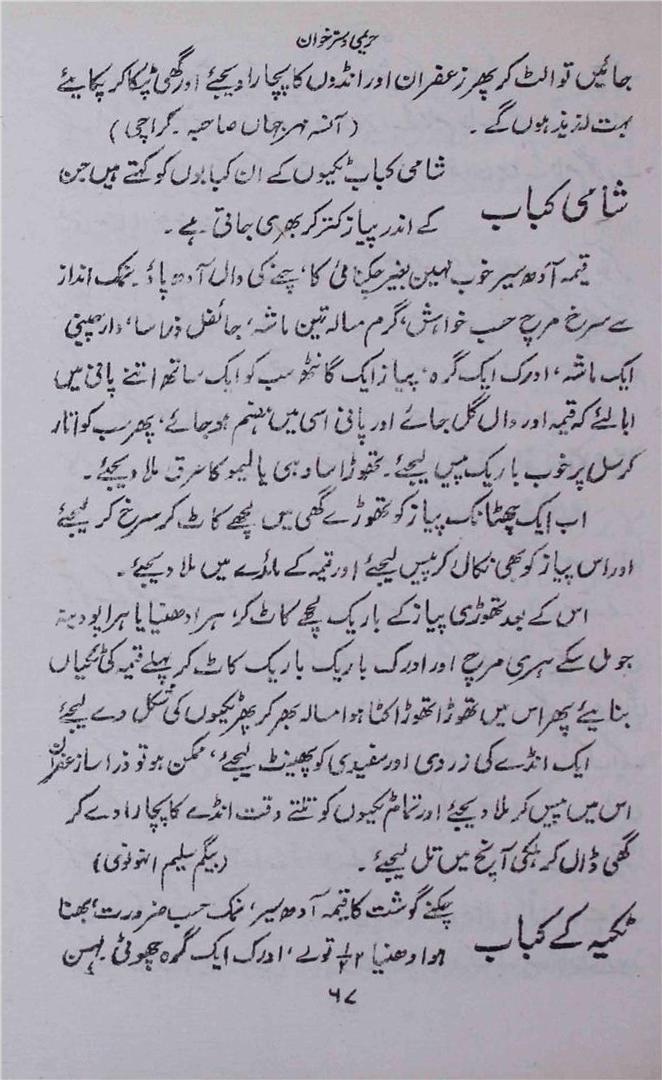 حریمی دسترخوان
جائیں تو الٹ کر پھر زعفران اور انڈوں کا پچارا دیجئے اور گھی ٹپکا کر پکایئے
بہت لذیذ ہوں گے۔ (آنسہ مہر جہاں صاحبہ۔ کراچی)
شامی کباب
شامی کباب ٹکیوں کے ان کبابوں کو کہتے ہیں جن
کے اندر پیاز کتر کر بھری جاتی ہے۔
قیمہ آدھ سیر خوب مہین بغیر چکنائی کا، چنے کی دال آدھ پاؤ نمک انداز
سے سرخ مرچ حسب خواہش، گرم مسالہ تین ماشہ، جائفل ذرا سا، دارچینی
ایک ماشہ، ادرک ایک گرہ، پیاز ایک گانٹھ سب کو ایک ساتھ اتنے پانی میں
ابالئے کہ قیمہ اور دال گل جائے اور پانی اسی میں ہضم ہو جائے، پھر سب کو اتار
کر سل پر خوب باریک پیس لیجئے۔ تھوڑا سا دہی یا لیمو کا عرق ملا دیجئے۔
اب ایک چھٹانک پیاز کو تھوڑے گھی میں لچھے کاٹ کر سرخ کر لیجئے
اور اس پیاز کو بھی نکال کر پیس لیجئے اور قیمہ کے مادے میں ملا دیجئے۔
اس کے بعد تھوڑی پیاز کے باریک لچھے کاٹ کر، ہرا دھنیا یا ہرا پودینہ
جو مل سکے ہری مرچ اور ادرک باریک باریک کاٹ کر پہلے قیمہ کی ٹکیاں
بنایئے پھر اس میں تھوڑا تھوڑا کٹا ہوا مسالہ بھر کر پھر ٹکیوں کی شکل دے لیجئے
ایک انڈے کی زردی اور سفیدی کو پھینٹ لیجئے، ممکن ہو تو ذرا سا زعفران
اس میں پیس کر ملا دیجئے اور تمام ٹکیوں کو تلتے وقت انڈے کا پچارا دے کر
گھی ڈال کر ہلکی آنچ میں تل لیجئے۔ (بیگم سلیم انہونوی)
ٹکیہ کے کباب
چکنے گوشت کا قیمہ آدھ سیر، نمک حسب ضرورت، بھنا
ہوا دھنیا ۲ ۱/۲ تولے، ادرک ایک گرہ چھوٹی۔ لہسن
۶۷